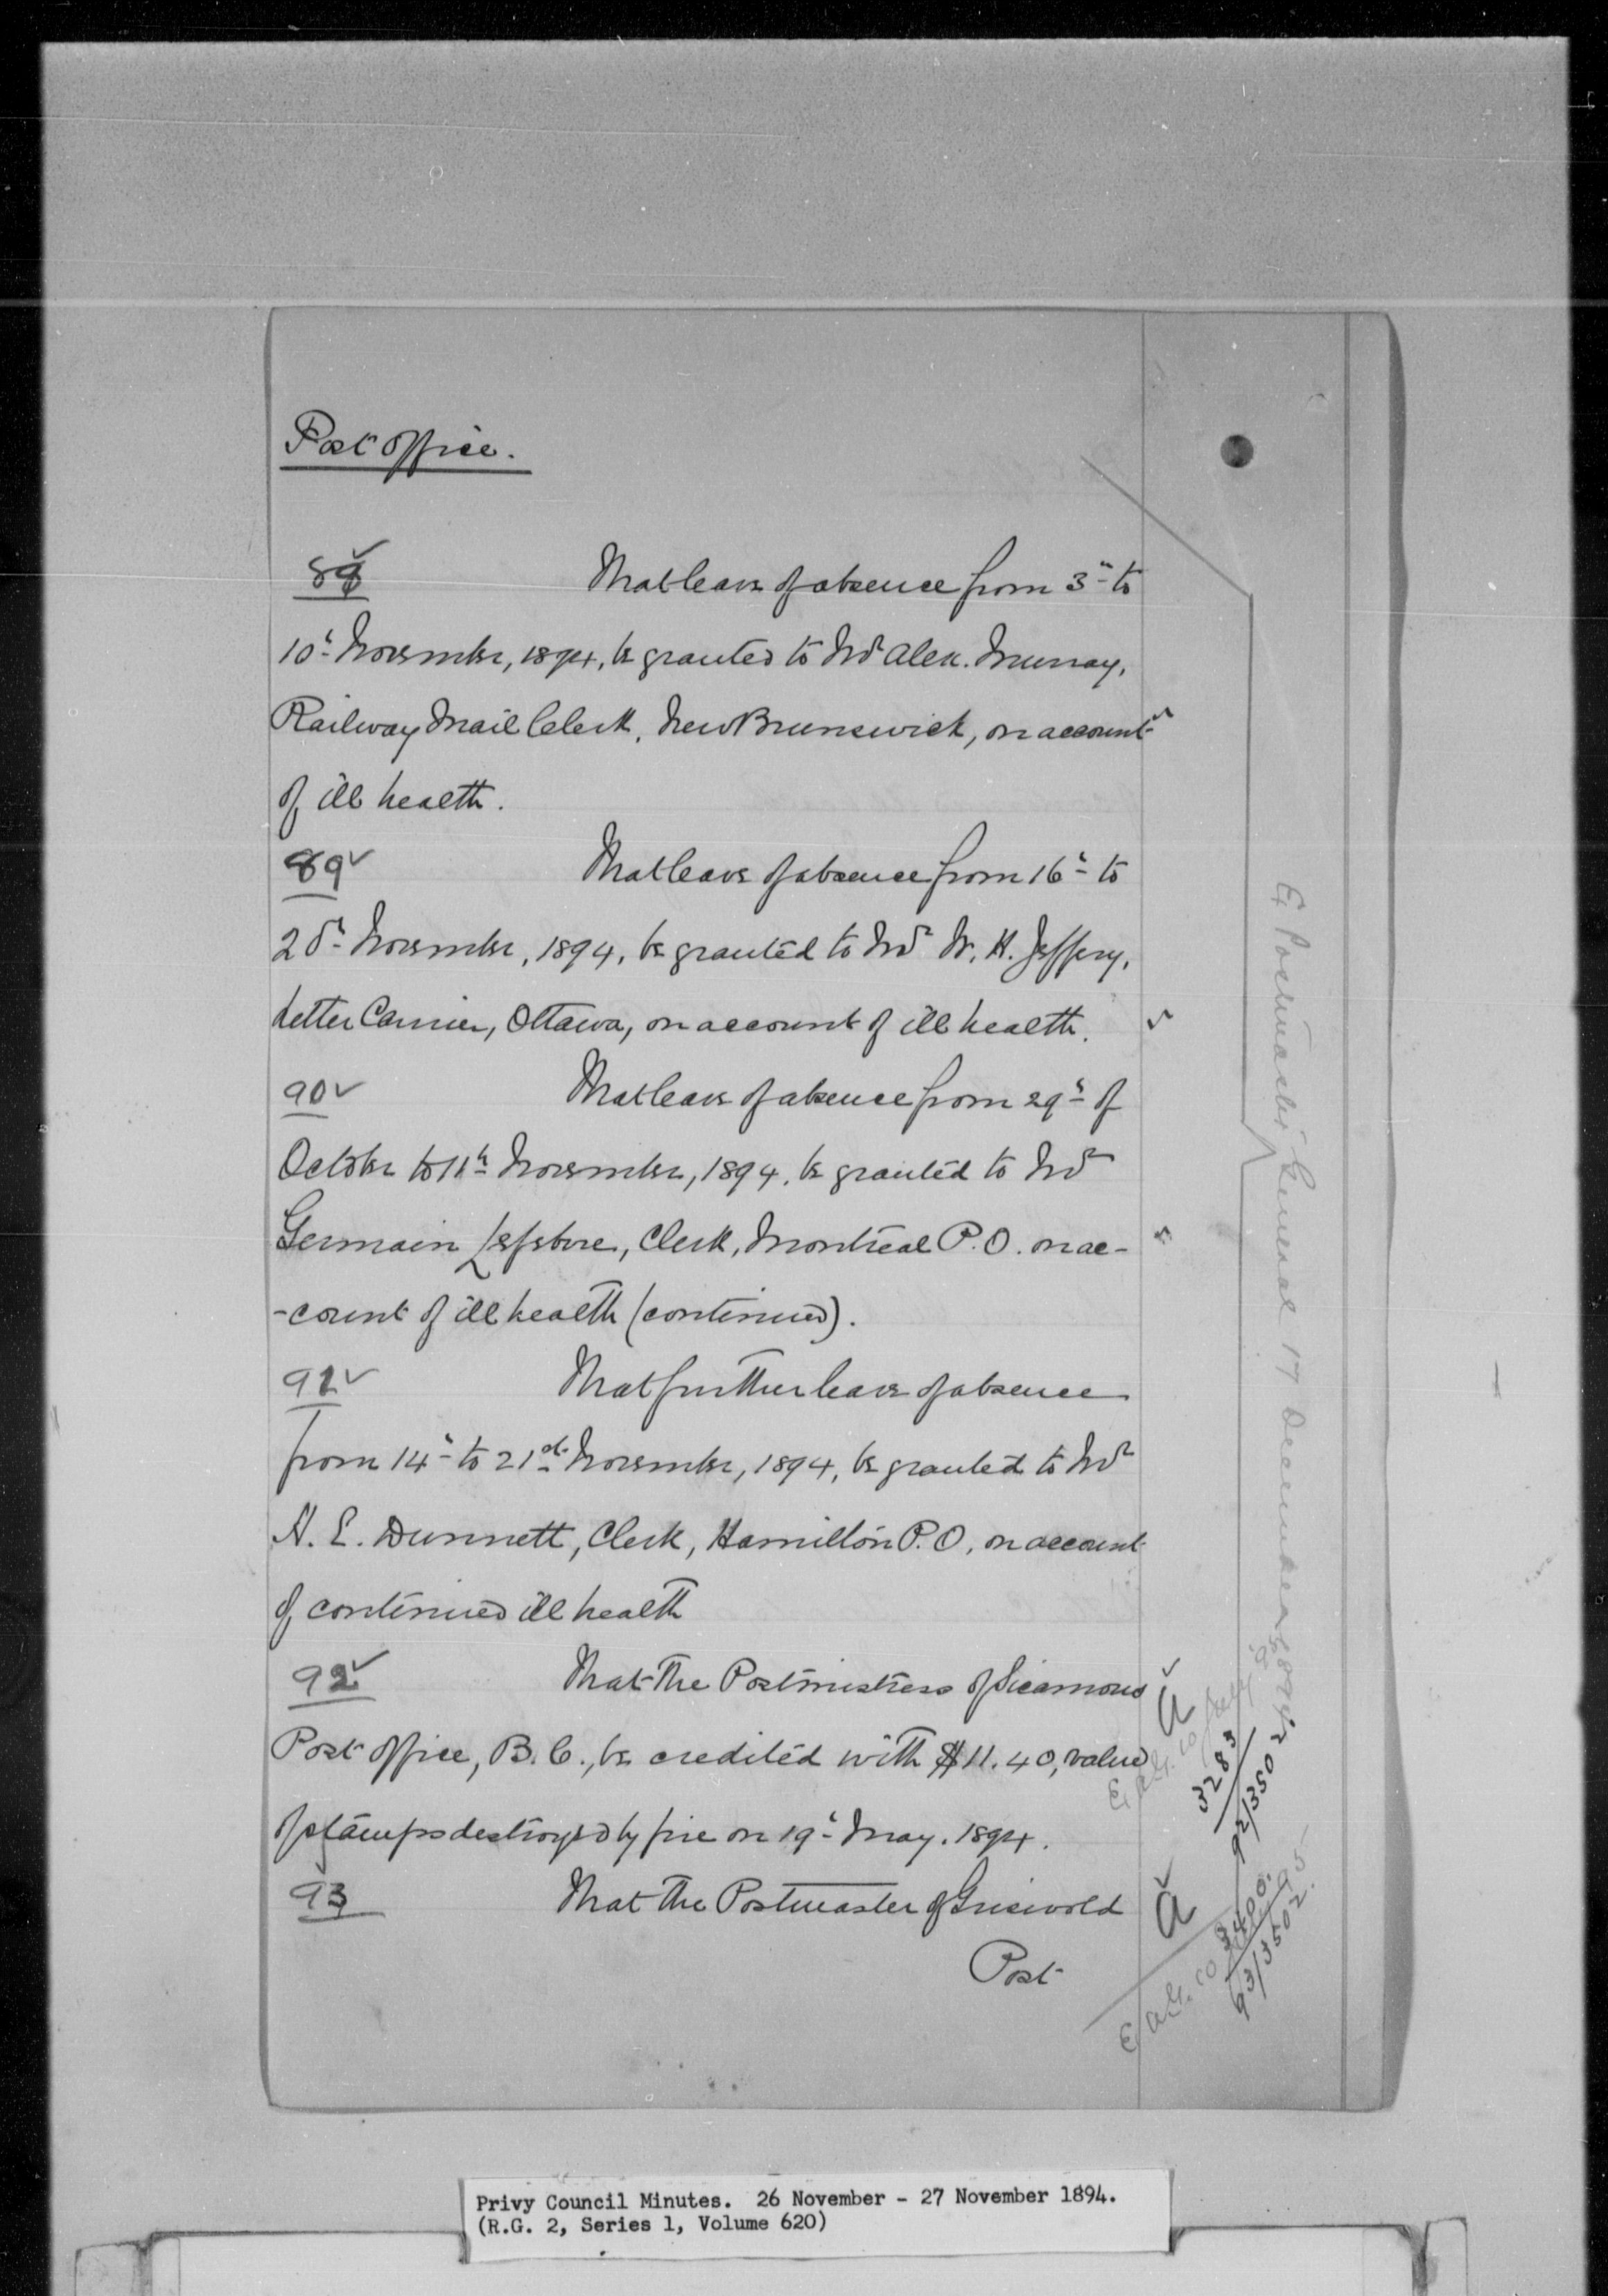 Post Office.
88 That leave of absence from 3rd to
10th November, 1894, be granted to Mr Alex. Murray,
Railway Mail Clerk, New Brunswick, on account
of ill health.
89 That leave of absence from 16th to
November, 1894, be granted to Mr W. H. Jeffery,
Letter Carrier, Ottawa, on account of ill health.
90 That leave of absence from 29th of
October to 11th November, 1894, be granted to Mr
Germain Lefebvre, Clerk, Montreal P.O. on ac-
-count of ill health (continued).
91 That further leave of absence
from 14th to 21st November, 1894, be granted to Mr
H. E. Dunnett, Clerk, Hamilton P.O, on account
of continued ill health
92 That the Postmistress of Sicamous
Post Office, B.C., be credited with $11.40, value
of stamps destroyed by fire on 19th May. 1894.
93 That the Postmaster of Griswold
Post
Ex Postmaster General 17 December 1894
a
3283
92/3502
a
3400
93/3502.
Privy Council Minutes. 26 November - 27 November 1894.
(R.G. 2, Series 1, Volume 620)